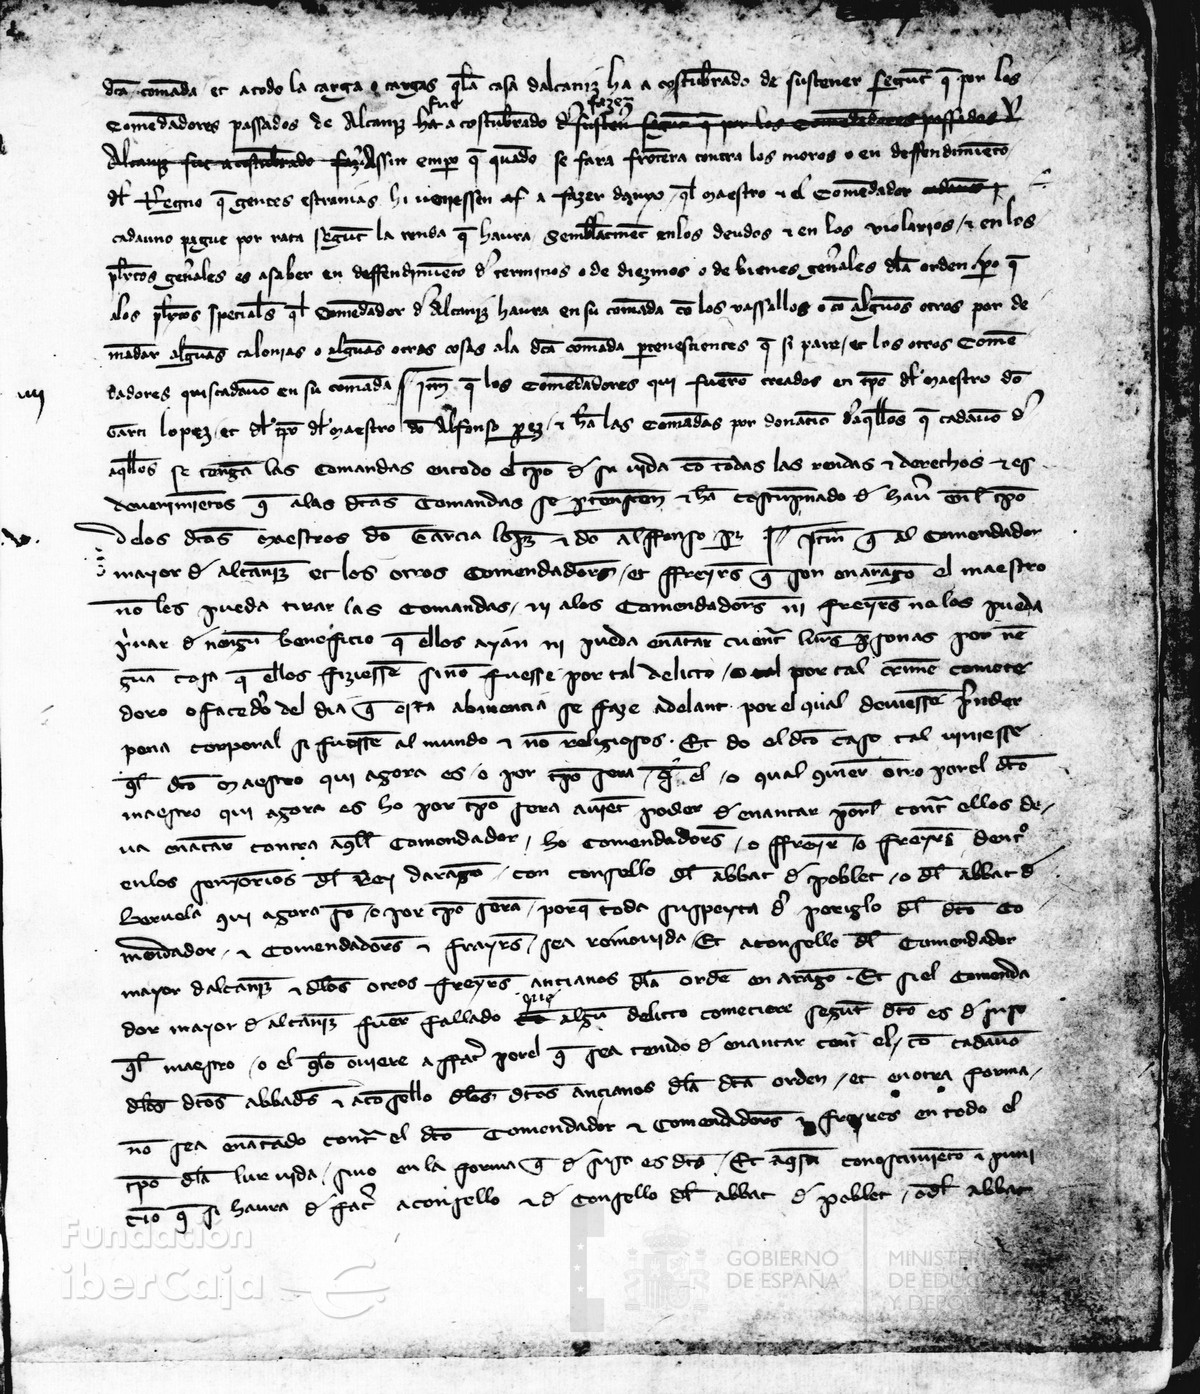 dca comada et atodo la carga o cargas qla casa dalcaniz ha a costubrado de sustener segut q por los
Comedadores passados de Alcaniz fue a costubrado fazer
Assin empo q quado se fara frotera contra los moros o en deffendimieto
dl Regno q gentes estranias hi veniessen a fazer dapno ql maestro e el Comedador
cadauno pague por rata segut la renda q haura Semblatmet enlos deudos e en los violarios e en los
pleytos gnales es asaber en deffendimieto d terminos o de diezmos o de bienes gnales dla orden po q
alos pleytos specials ql Comedador d Alcaniz haura en su comada co los vassallos o co alguos otros por de
madar alguas calonias o alguas otras cosas ala dca comada ptenescientes q si pare et los otros Come
dadores quiscadauo en su comada Itm q los Comedadores qui fuero creados en tpo dl maestro do
Garci lopez et dl tpo dl maestro do Alfonso perez e ha las Comadas por donatio daqllos q cadauo d
aqllos se tenga las Comandas entodo el tpo d su vida co todas las rendas e derechos e es
deuenimietos q alas dcas Comandas se ptenescen e ha costupnado d hau enl tpo
delos dcos maestros do Garcia lopz e do alffonso pz Itm q al Comendador
mayor d alcaniz et los otros Comendadors et ffreyrs q son enarago el maestro
no les pueda tirar las Comandas ni alos Comendadors ni freyrs no los pueda
priuar d negu beneficio q ellos ayan ni pueda enatar cuent lurs psonas por ne
gua cosa q ellos fiziesse sino fuesse por tal delicto o por tal crime comete
doro o facedo del dia q esta abinencia se faze adelant por el qual deuiesse prender
pena corporal si fuesse al mundo e no religiosos Et do el dco caso tal viniesse
ql dco maestro qui agora es o por tpo sera q el o qual quier otro por el dco
maestro qui agora es ho por tpo sera auiet poder d enantar porl cont ellos de
ua enatar contra aqll Comendador ho Comendadors o ffreyr o freyrs dent
enlos senyorios dl Rey darago con consello dl abbat d poblet o dl abbat d
Beruela qui agora so o por tpo sera porq toda suspeyta d periglo dl dco Co
mendador e Comendadors e frayrs sea remouida Et aconsello dl Comendador
mayor dalcaniz e dlos otros freyrs ancianos dla orde en arago Et si el Comenda
dor mayor d alcaniz fuer fallado que algu delicto cometiere segut dco es d suso
ql maestro o el qlo ouiere affar porel q sea tenido d enantar cont el co cadauo
dlos dcos abbads e acosello dlos dcos ancianos dla dca orden et en otra forma
no sea enatado cont el dco Comendador e Comendadors e freyres en todo el
tpo dla lur vida sino en la forma q d suso es dco Et aqsta conoscimieto e puni
cio q si haura d far aconsello e d consello dl abbat d poblet o dl abbat
Fundación
iberCaja
GOBIERNO
DE ESPAÑA